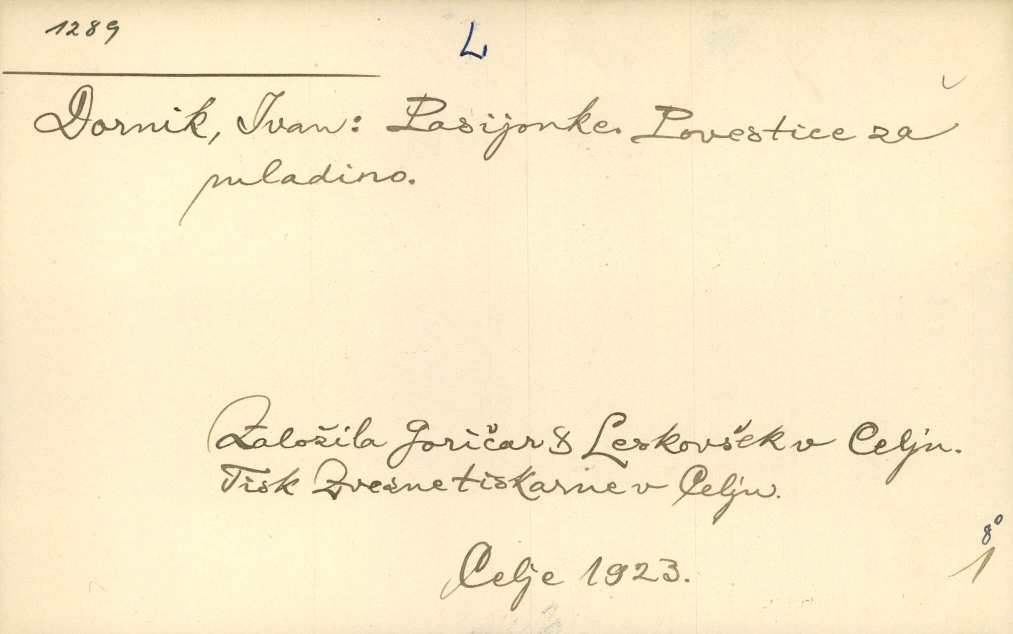 1289
L
Dornik, Ivan: Pasijonke. Povestice za
mladino.
Založila Goričar & Leskovšek v Celju.
Tisk Zvezne tiskarne v Celju.
8°
Celje 1923.
1